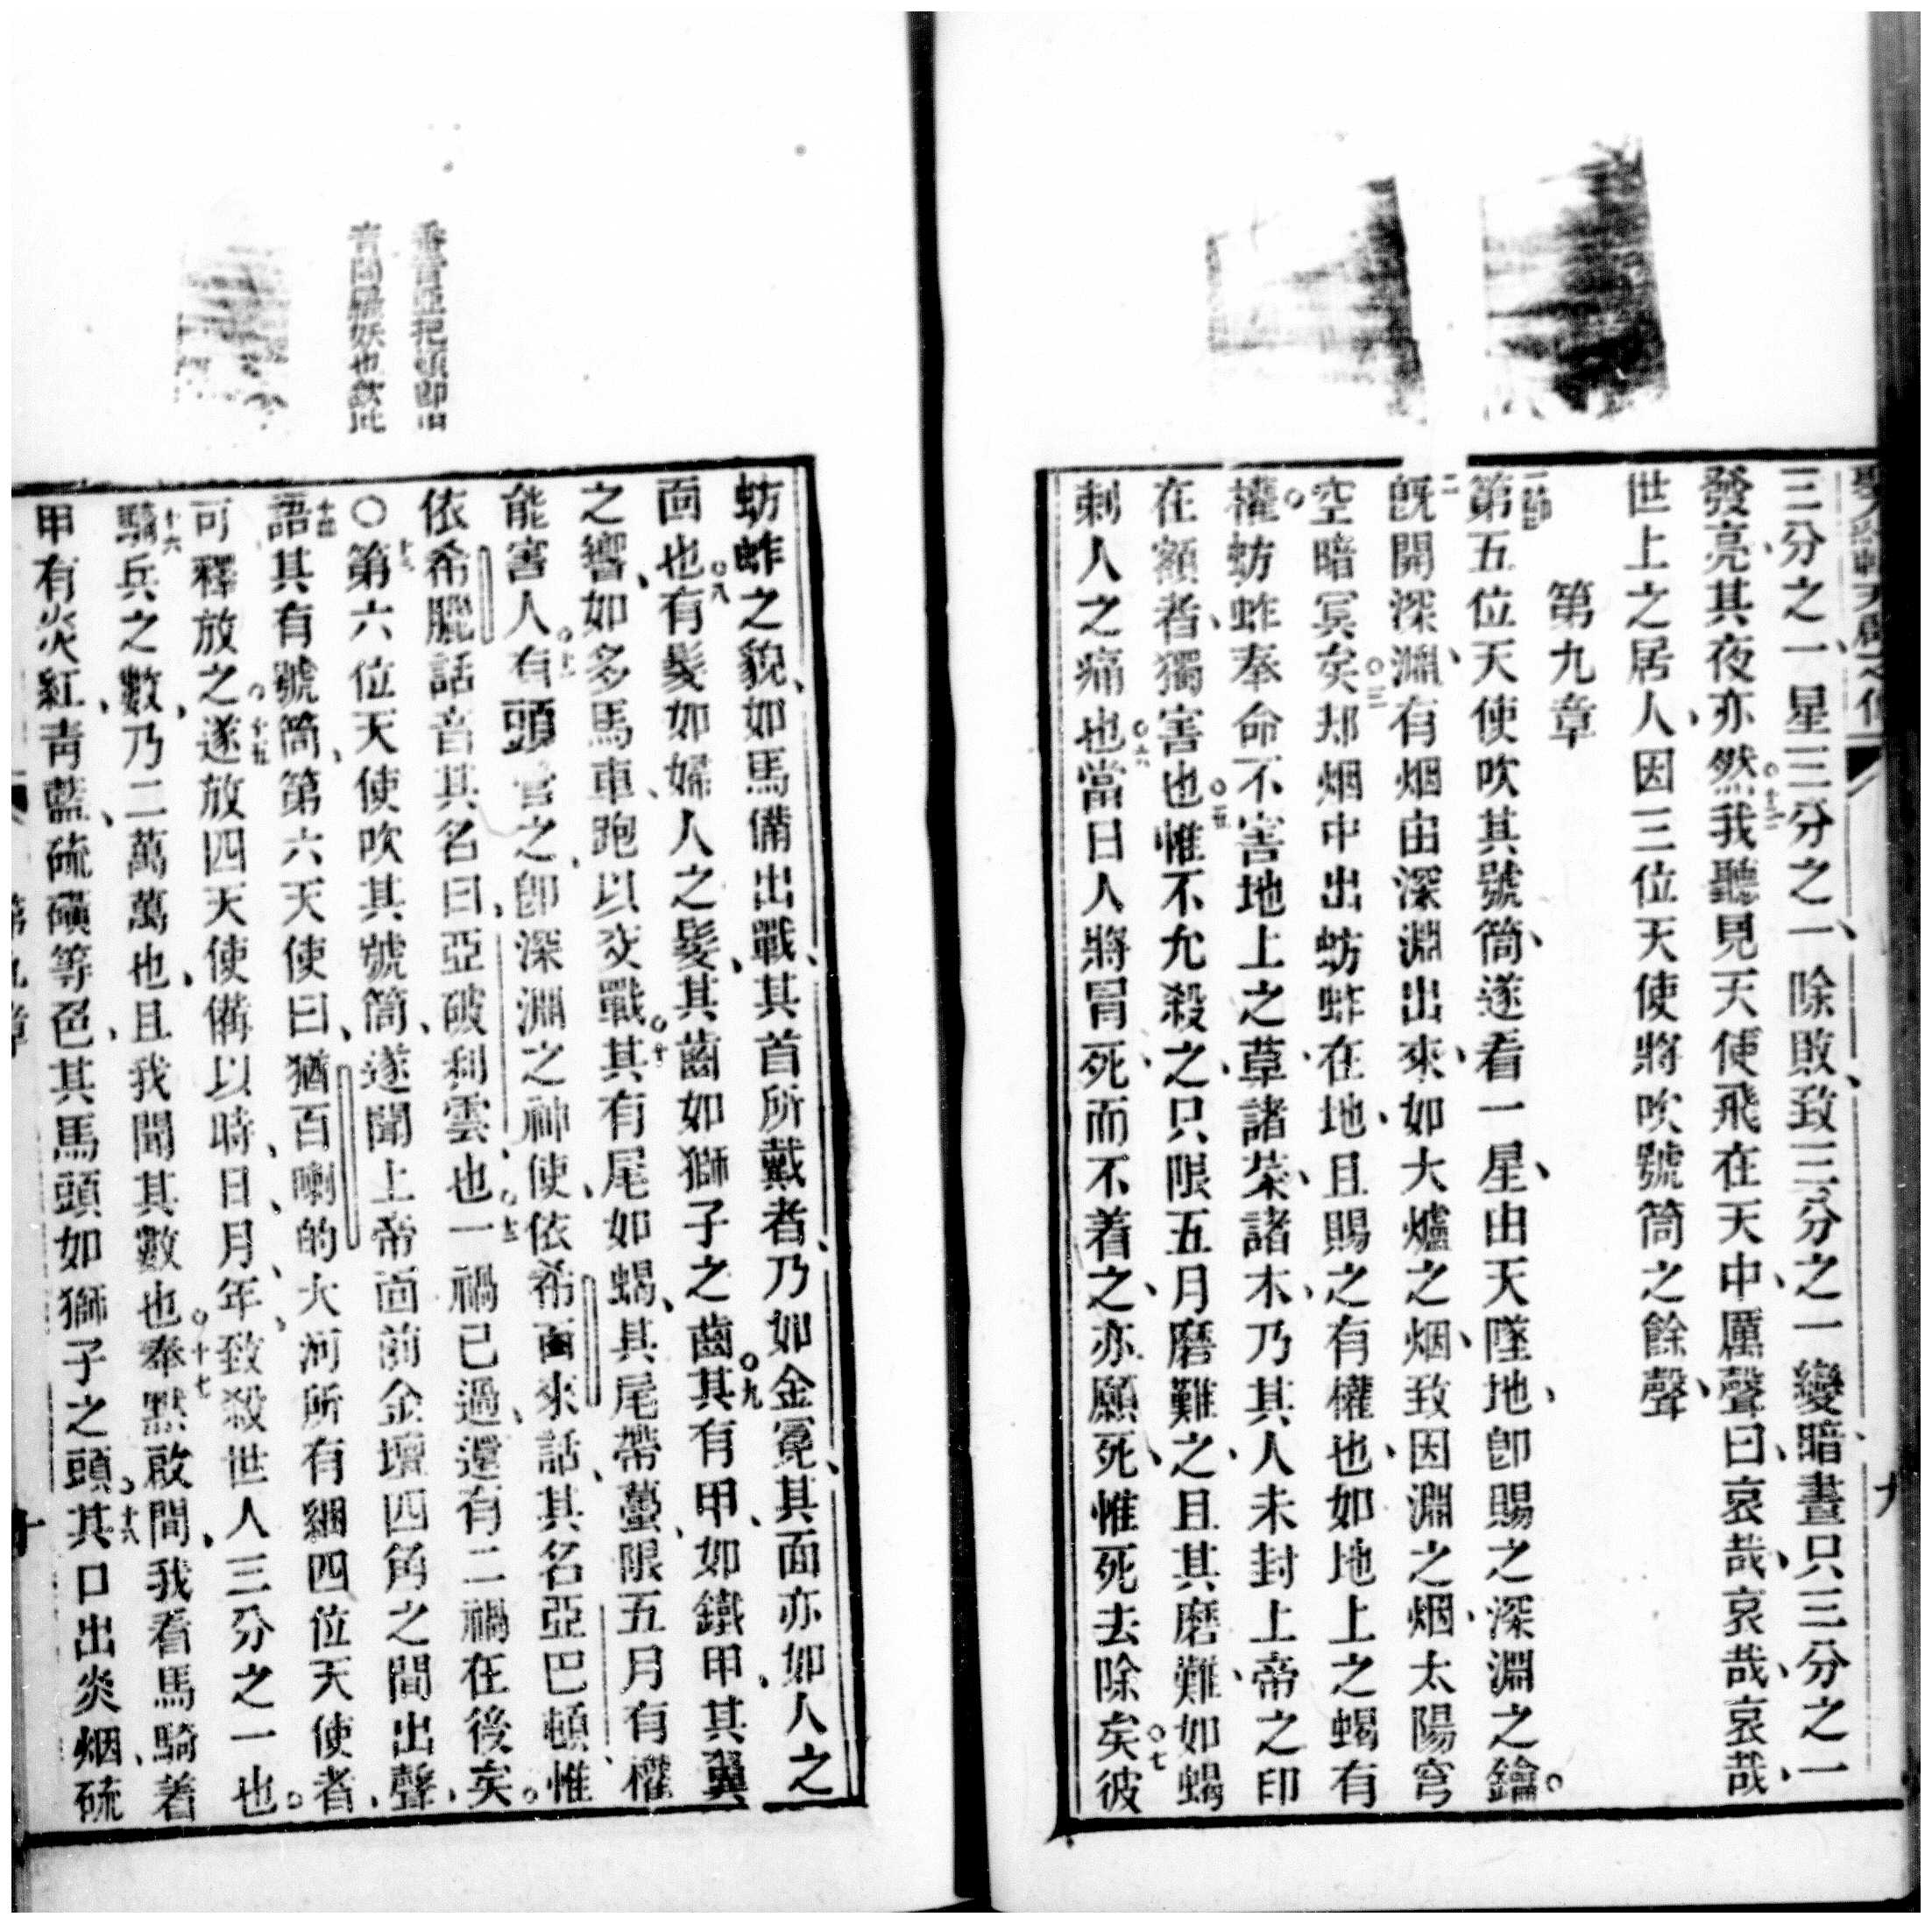 三分之一、星三分之一、除敗、致三分之一變暗、晝只三分之一
發亮、其夜亦然。十三我聽見天使飛在天中、厲聲曰、哀哉、哀哉、哀哉、
世上之居人、因三位天使將吹號筒之餘聲、
第九章
一節第五位天使吹其號筒、遂看一星、由天墜地、卽賜之深淵之鑰。
二旣開深淵、有烟由深淵出來、如大爐之烟、致因淵之烟、太陽穹
空暗冥矣。三却烟中出蚄蚱在地、且賜之有權也、如地上之蝎有
權。蚄蚱奉命不害地上之草、諸菜、諸木、乃其人未封上帝之印
在額者、獨害也。五惟不允殺之、只限五月磨難之、且其磨難、如蝎
刺人之痛也。六當日人將冒死、而不着之、亦願死、惟死去除矣。七彼
蚄蚱之貌、如馬備出戰、其首所戴者、乃如金冕、其面亦如人之
面也。八有髮如婦人之髮、其齒如獅子之齒。九其有甲、如鐵甲、其翼
之響、如多馬車、跑以交戰。十其有尾如蝎、其尾帶蠆、限五月有權
能害人。十一有頭管之、卽深淵之神使、依希百來話、其名亞巴頓、惟
依希臘話音其名曰、亞破利雲也。十二一禍已過、還有二禍在後矣。
〇十三第六位天使吹其號筒、遂聞上帝面前金壇四角之間出聲、
十四語其有號筒、第六天使曰、猶百喇的大河所有綑四位天使者、
可釋放之。十五遂放四天使、備以時、日、月、年、致殺世人三分之一也。
十六騎兵之數、乃二萬萬也、且我聞其數也。十七奉默啟間、我看馬騎着
甲有炎紅、靑藍、硫磺等色、其馬頭如獅子之頭。十八其口出炎、烟、硫
第九章
十
九